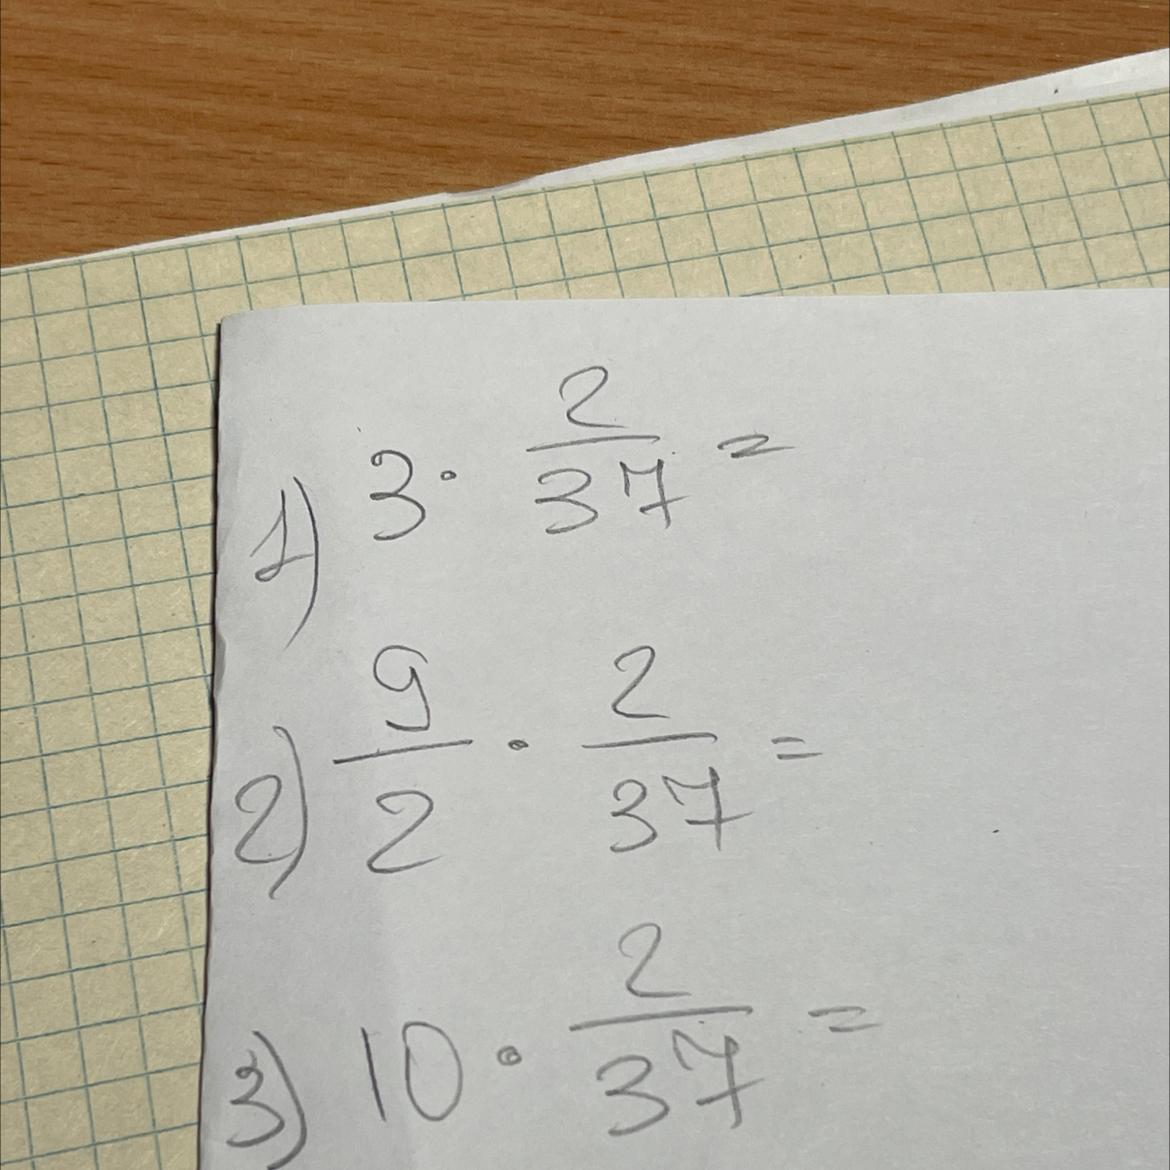 1) 3 · 2/37 =
2) 9/2 · 2/37 =
3) 10 · 2/37 =